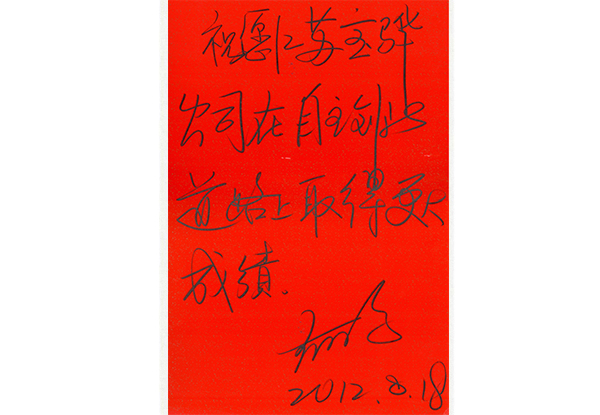 祝愿江苏宝骅
公司在自主创业
道路上取得更大
成绩。
2012.8.18